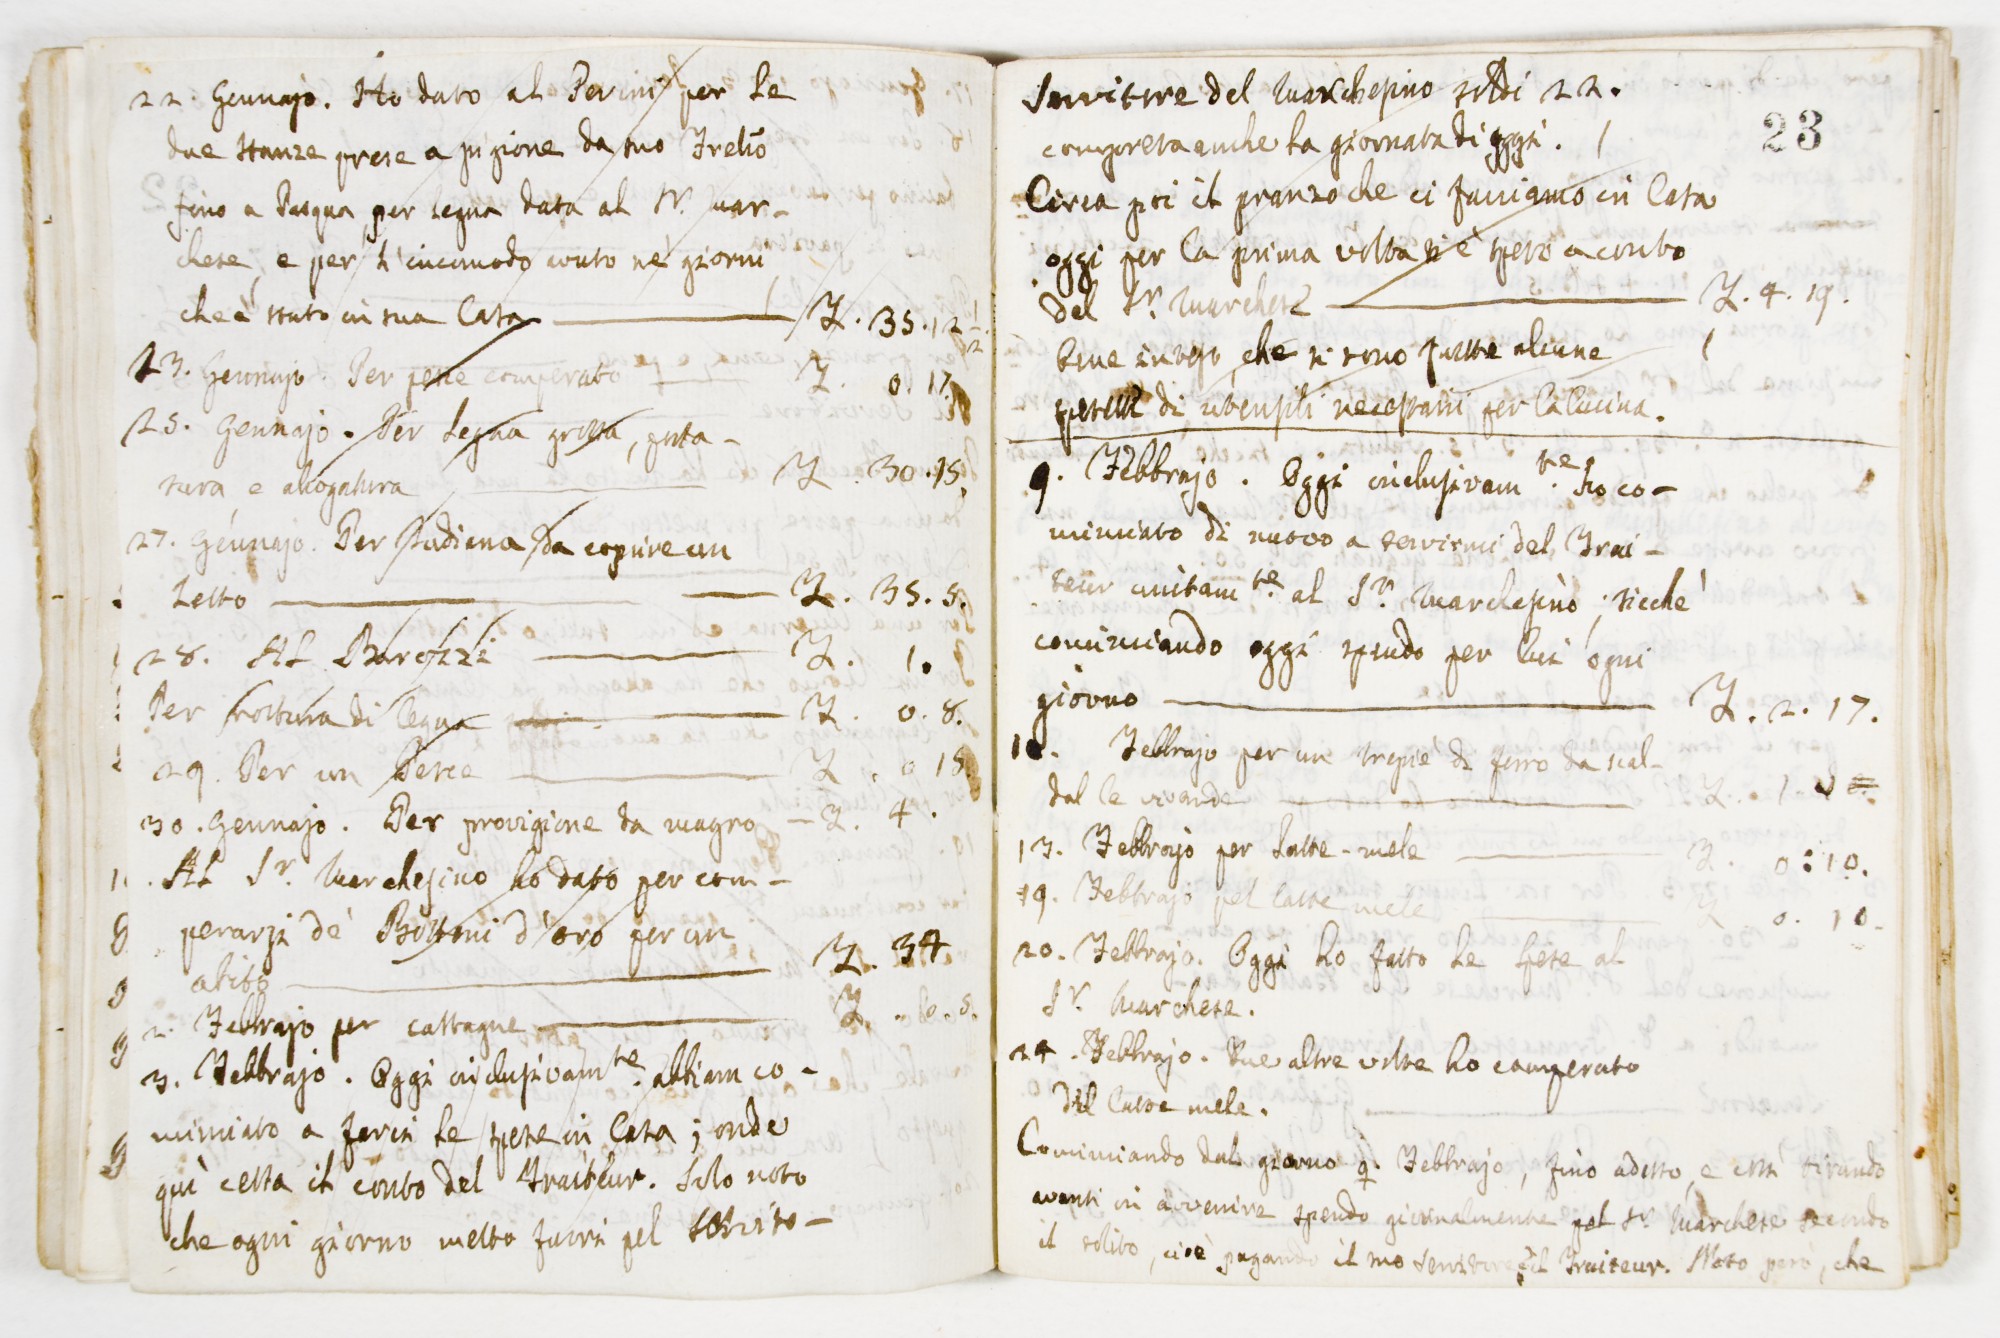 22. Gennajo. Ho dato al Perini per le
due stanze prese a pigione da suo Frello
fino a Pasqua, per legna data al Sr. Mar-
chese, e per l'incomodo avuto ne' giorni
che è stato in sua Casa — L. 35.12 1/2.
23. Gennajo. Per pesce comperato — L. 0.17.
25. Gennajo. Per legna grossa, porta-
tura e allogatura — L. 30.15.
27. Gennajo. Per Indiana da coprire un
Letto — L. 35.5.
28. Al Barozzi — L. 1.
Per rottura di legna — L. 0.8.
29. Per un Pesce — L. 0 15.
30. Gennajo. Per provigione da magro — L. 4.
Al Sr. Marchesino ho dato per com-
perarsi de' Bottoni d'oro per un
abito — L. 34
2. Febbrajo per castagne — L. .5.
3. Febbrajo. Oggi inclusivamte. abbiam co-
minciato a farci le spese in Casa; onde
quì cessa il conto del Traiteur. Solo noto
che ogni giorno metto fuori pel
Servitore del Marchesino soldi 22.
23
compresa anche la giornata di oggi.
Circa poi il pranzo che ci facciamo in Casa
oggi per la prima volta si è speso a conto
del Sr. Marchese — L. 4. 19.
Bene inteso, che si sono fatte alcune
spese di utensili necessarii per la Cucina.
9. Febbrajo. Oggi inclusivamte. ho co-
minciato di nuovo a servirmi del Trai-
teur unitamte. al Sr. Marchesino; sicchè
cominciando oggi spendo per lui ogni
giorno — L. 2. 17.
10. Febbrajo per un trepiè di ferro da scal-
dal le vivande — L. 1
13. Febbrajo per latte-mele — L. 0:10.
19. Febbrajo pel latte mele — L 0. 10.
20. Febbrajo. Oggi ho fatto le spese al
Sr. Marchese.
24. Febbrajo. Due altre volte ho comperato
del latte mele.
Cominciando dal giorno 9. Febbrajo, fino adesso, e così tirando
avanti in avvenire spendo giornalmente pel Sr. Marchese secondo
il solito, cioè pagando il suo Servitore, e il Traiteur. Noto però, che